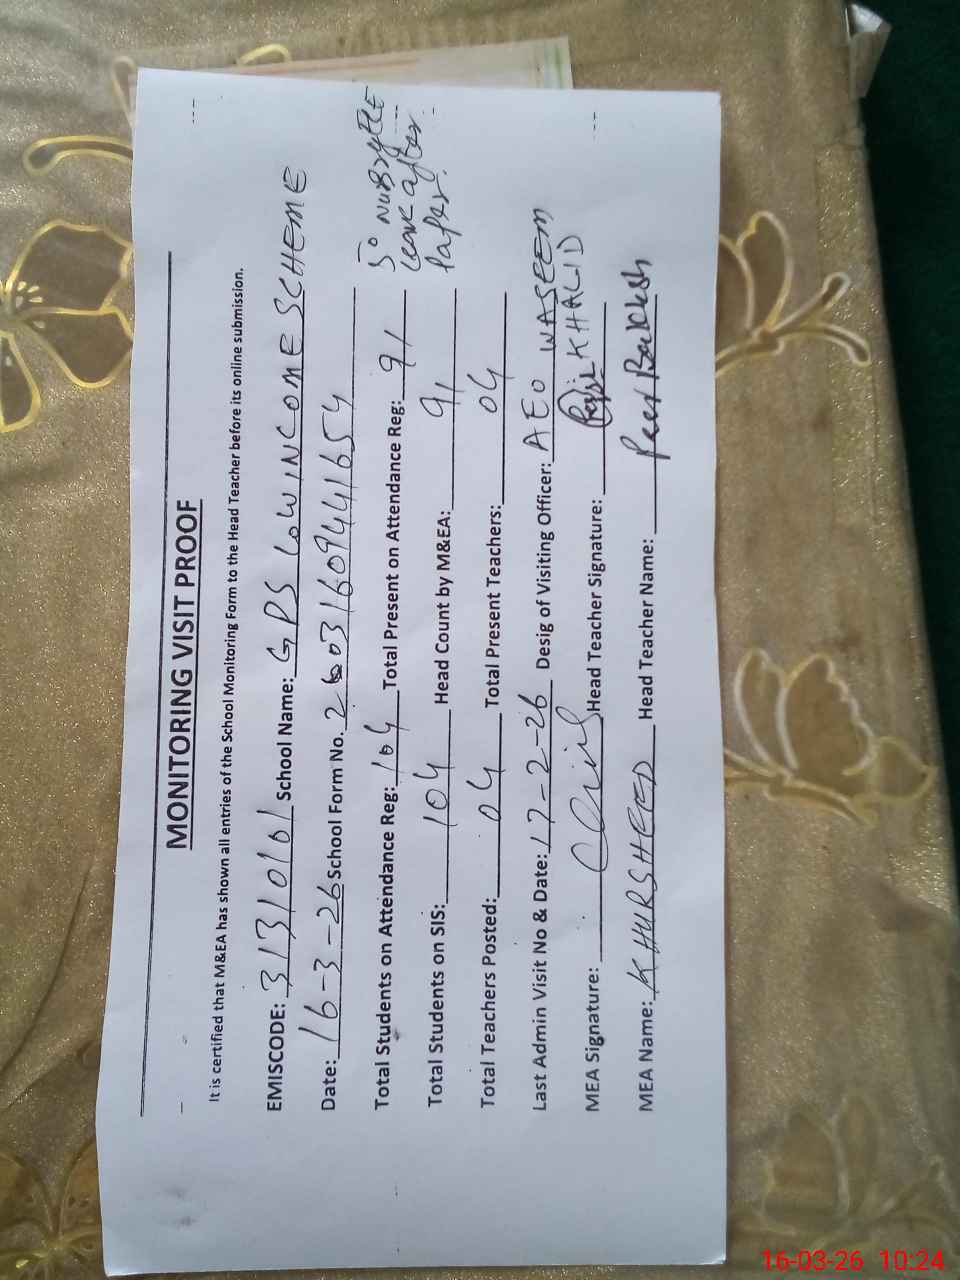 MONITORING VISIT PROOF
It is certified that M&EA has shown all entries of the School Monitoring Form to the Head Teacher before its online submission.
EMISCODE: 31310101 School Name: GPS LOWINCOME SCHEME
Date: 16-3-26 School Form No. 26031609441654
Total Students on Attendance Reg: 104 Total Present on Attendance Reg: 91
Total Students on SIS: 104 Head Count by M&EA: 91
Total Teachers Posted: 04 Total Present Teachers: 04
50
leave after
Paper.
Last Admin Visit No & Date: 17-2-26 Desig of Visiting Officer: AEO WASEEM
KHALID
MEA Signature: Head Teacher Signature:
MEA Name: KHURSHEED Head Teacher Name: Peer Bakhsh
16-03-26 10:24